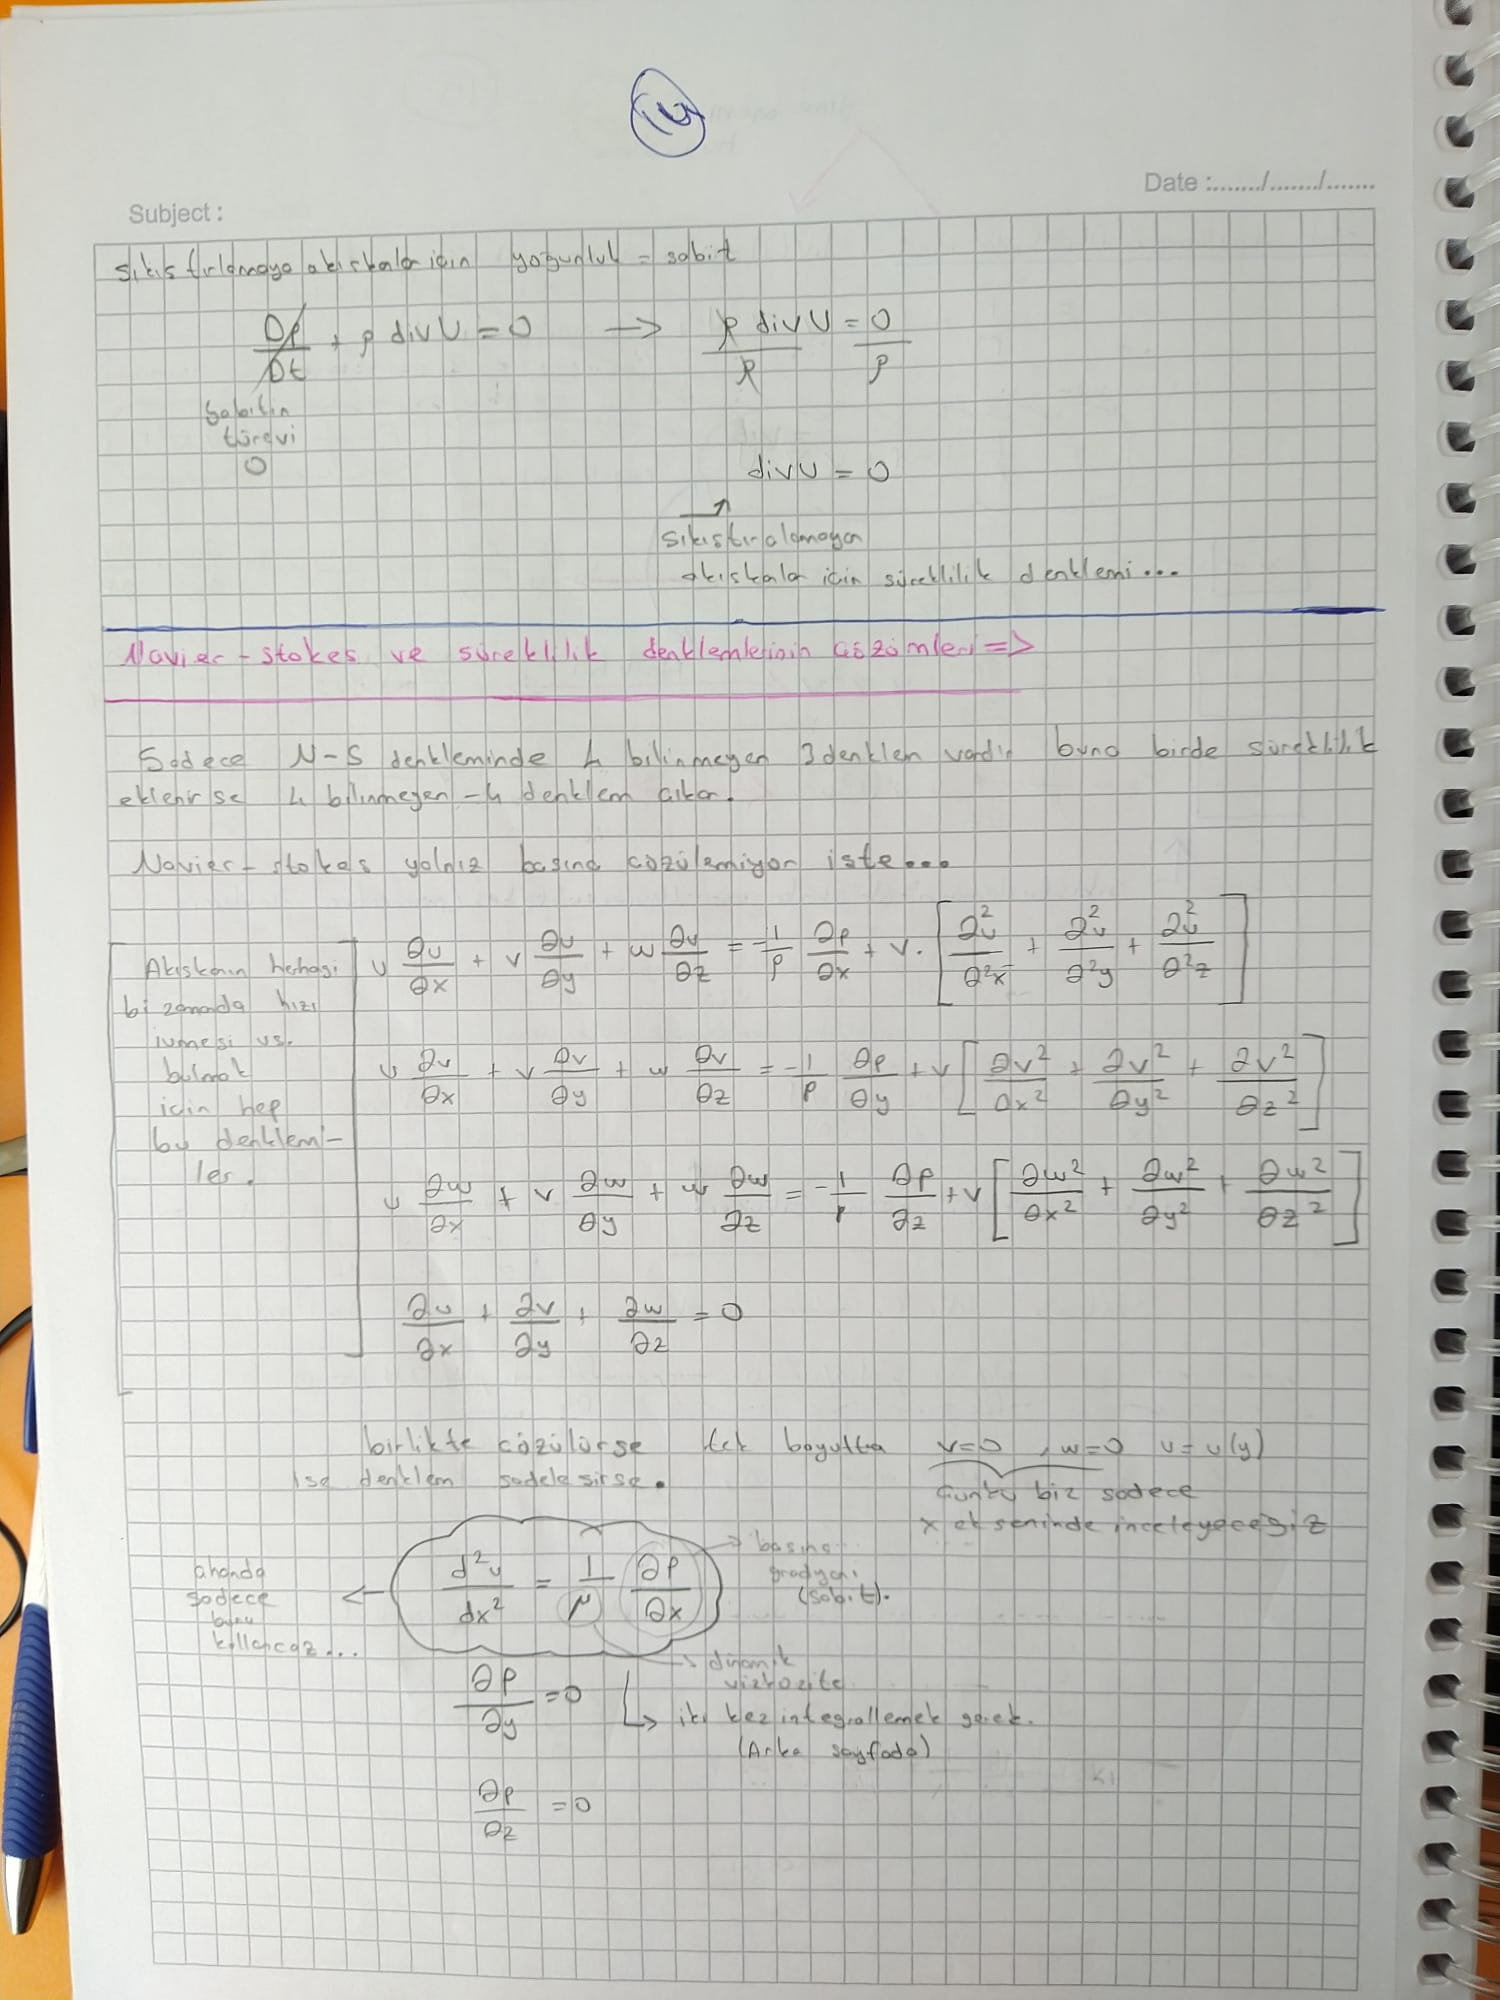 Date :......../......./.......
Subject :
Sıkıştırılamaya akışkalar için yoğunluk = sabit
Dρ/Dt + ρ divU = 0 → ρ divU/ρ = 0/ρ
Sabitin
türevi
0
divU = 0
Sıkıştırılamayan
akışkalar için süreklilik denklemi...
Navier-stokes ve süreklilik denklemlerinin çözümleri =>
Sadece N-S denkleminde 4 bilinmeyen 3 denklem vardır buna birde süreklilik
eklenirse 4 bilinmeyen - 4 denklem çıkar.
Navier-stokes yalnız başına çözülemiyor işte...
Akışkanın herhagi
bi zamanda hızı
ivmesi vs.
bulmak
için hep
bu denklem-
ler.
u ∂u/∂x + v ∂u/∂y + w ∂u/∂z = -1/ρ ∂p/∂x + ν · [∂²u/∂²x + ∂²u/∂²y + ∂²u/∂²z]
u ∂v/∂x + v ∂v/∂y + w ∂v/∂z = -1/ρ ∂p/∂y + ν [∂v²/∂x² + ∂v²/∂y² + ∂v²/∂z²]
u ∂w/∂x + v ∂w/∂y + w ∂w/∂z = -1/ρ ∂p/∂z + ν [∂w²/∂x² + ∂w²/∂y² + ∂w²/∂z²]
∂u/∂x + ∂v/∂y + ∂w/∂z = 0
birlikte çözülürse tek boyutta v=0 , w=0 u=u(y)
ise denklem sadeleşirse.
Çünkü biz sadece
x ekseninde inceleyeceğiz
d²u/dx² = 1/μ ∂p/∂x
→ basınç
gradyanı
(sabit).
ahanda
sadece
bunu
kullancaz...
→ dinamik
vizkozite
∂p/∂y = 0
↳ iki kez integrallemek gerek.
(Arka sayfada)
∂p/∂z = 0